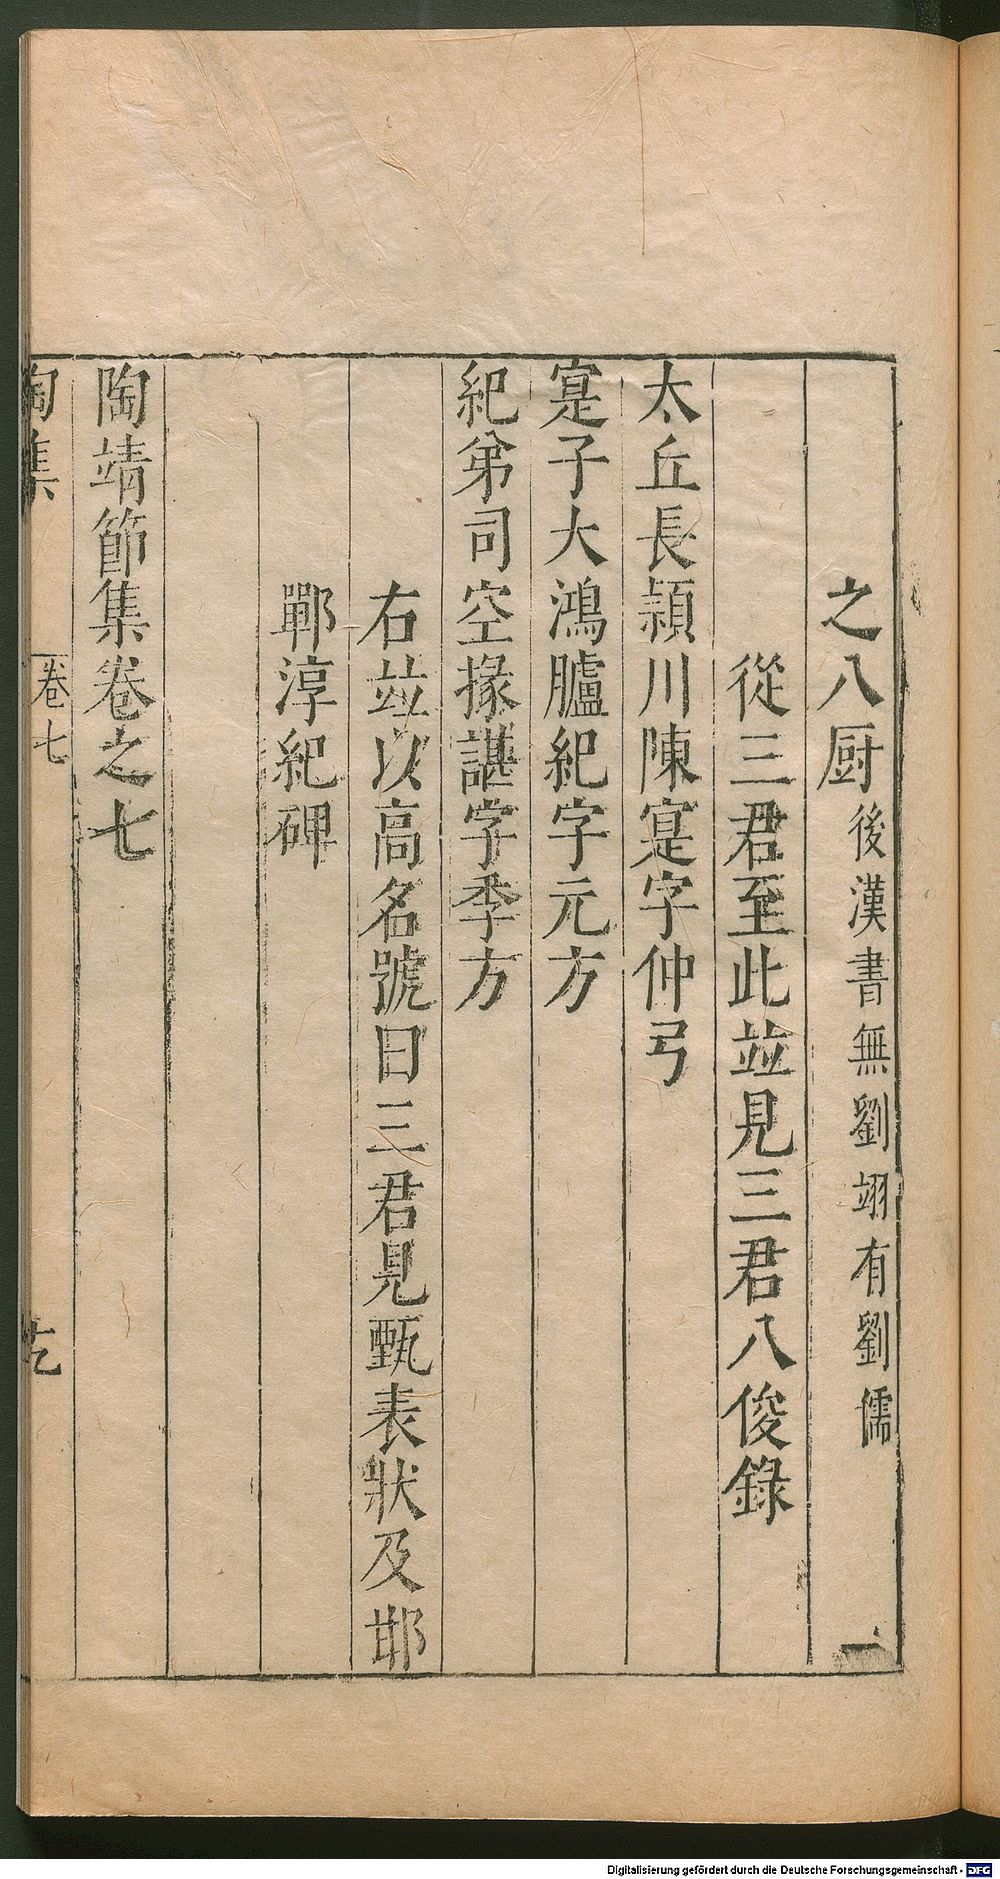 之八厨後漢書無劉翊有劉儒
從三君至此並見三君八俊錄
太丘長潁川陳寔字仲弓
寔子大鴻臚紀字元方
紀弟司空掾諶字季方
右並以高名號曰三君見甄表狀及邯
鄲淳紀碑
陶靖節集卷之七
陶集 卷七
Digitalisierung gefördert durch die Deutsche Forschungsgemeinschaft - DFG